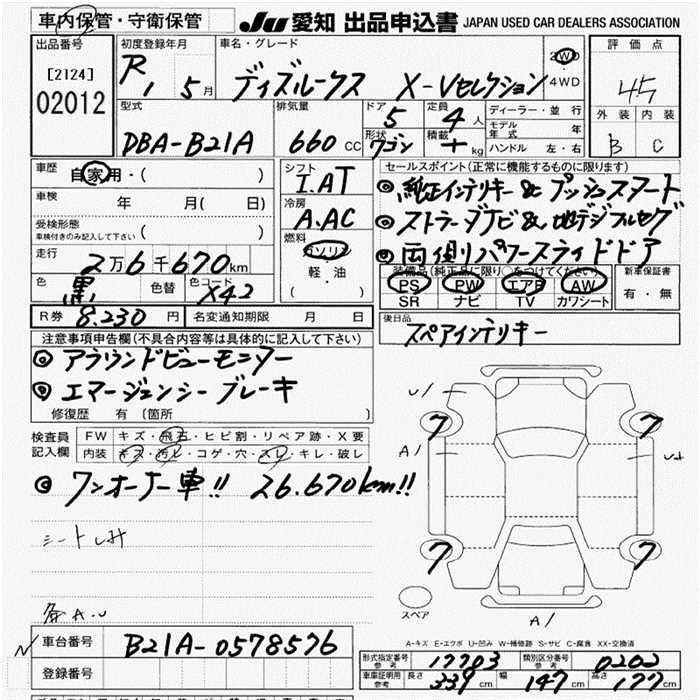 車内保管・守衛保管
JU 愛知 出品申込書 JAPAN USED CAR DEALERS ASSOCIATION
出品番号
[2124]
02012
初度登録年月
R 1 5 月
車名・グレード
ディズルークス X-Vセレクション
2WD
4WD
評価点
4.5
外装 内装
B C
型式
DBA-B21A
排気量
660 CC
ドア
5
形状
ワゴン
定員
4 人
積載
kg
ディーラー・並行
モデル年式 年
ハンドル 左・右
車歴
自家用・( )
車検 年 月( 日)
受検形態
車検付きのみ記入して下さい ( )
走行
2万6千670km
色
黒
色替
色コード
X42
シフト
I.AT
冷房
A.AC
燃料
ガソリン
軽・油
( )
セールスポイント(正常に機能するものに限ります)
◎ 純正インテリキー & プッシュスタート
◎ ストラーダナビ &、地デジフルセグ
◎ 両側パワースライドドア
装備品(純正品に限り○をつけてください)
PS PW エアB AW
SR ナビ TV カワシート
新車保証書
有・無
R券 8,230 円
名変通知期限 月 日
後日品
スペアインテリキー
注意事項申告欄(不具合内容等は具体的に記入して下さい)
◎ アラウンドビューモニター
◎ エマージェンシーブレーキ
修復歴 有(箇所 )
検査員記入欄
FW キズ・飛石・ヒビ割・リペア跡・X要
内装 キズ・汚レ・コゲ・穴・スレ・キレ・破レ
◎ ワンオーナー車!! 26.670km!!
シートしみ
各A.U
U1
7
7
A1
7
7
スペア
A1
A-キズ E-エクボ U-凹み W-補修跡 S-サビ C-腐食 XX-交換済
車台番号 B21A-0578576
登録番号
形式指定番号 参考 17703
類別区分番号 参考 0202
車庫証明用 参考 長さ 339 cm 幅 147 cm 高さ 177 cm